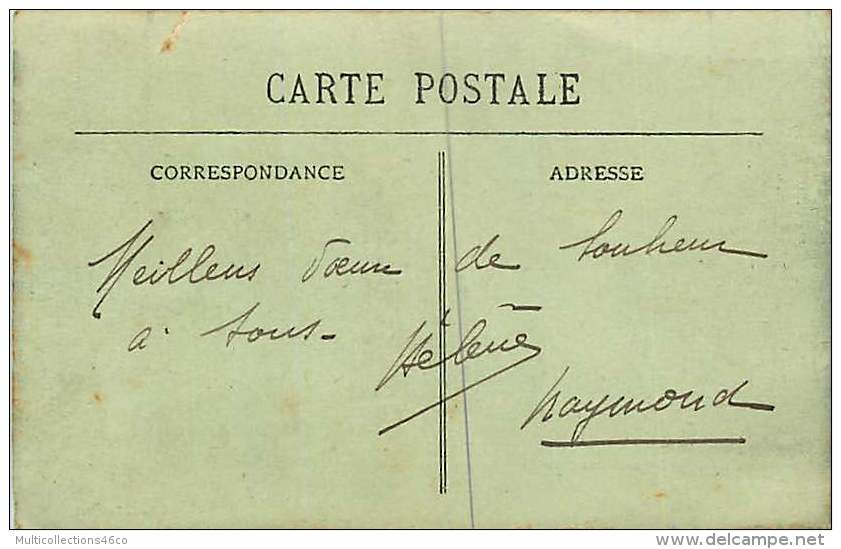 CARTE POSTALE
CORRESPONDANCE ADRESSE
Meilleurs vœux de bonheur
à tous -
Hélène
Raymond
Multicollections46co
www.delcampe.net